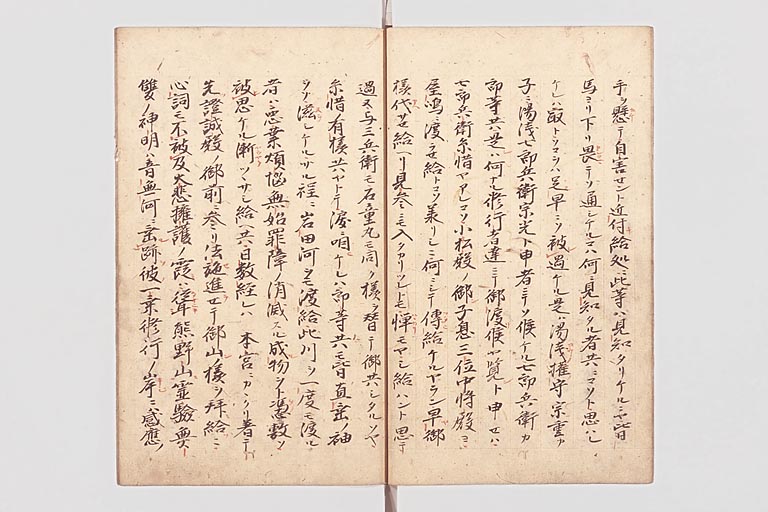 手ヲ懸テ自害セント近付給処ニ此等ハ見知タリケルニヤ皆
馬ヨリ下リ畏テソ通シケルコハ何ニ見知タル者共ニコソト思ハレ
ケレハ最トコソハ足早ニソ被過ケル是ハ湯浅権守宗重カ
子ニ湯浅七郎兵衛宗光ト申者ニテソ候ケル七郎兵衛カ
郎等共ハ是ハ何ナル修行者達ニテ御渡候ヤ覧ト申セハ
七郎兵衛糸惜ヤアレコソ小松殿ノ御子息三位中将殿ヨ
屋嶋ニ渡セ給トコソ承リシニ何ニシテ傳給ケルヤラン早御
様代サセ給ケリ見参ニモ入タカリツレトモ憚モヤシ給ハント思テ
過ヌ与三兵衛モ石童丸モ同ク様ヲ替テ御共シタルソヤ
糸惜有様共ヤトテ涙ニ咽ケレハ郎等共モ皆直垂ノ袖
ヲソ滋シケルサル程ニ岩田河ヲモ渡給此川ヲ一度モ渡ル
者ハ悪業煩悩無始罪障ノ消滅スル成物ヲト憑敷ソ
被思ケル漸ツヽサシ給ヘ共日数経レハ 本宮ニカヽクリ着テ
先證誠殿ノ御前ニ参リ法施進セテ御山様ヲ拝給ニ
心詞モ不被及大悲擁護ノ霞ハ熊野山ニ聳霊験無
雙ノ神明ハ音無河ニ垂跡彼一乗修行ノ岸ニ感應